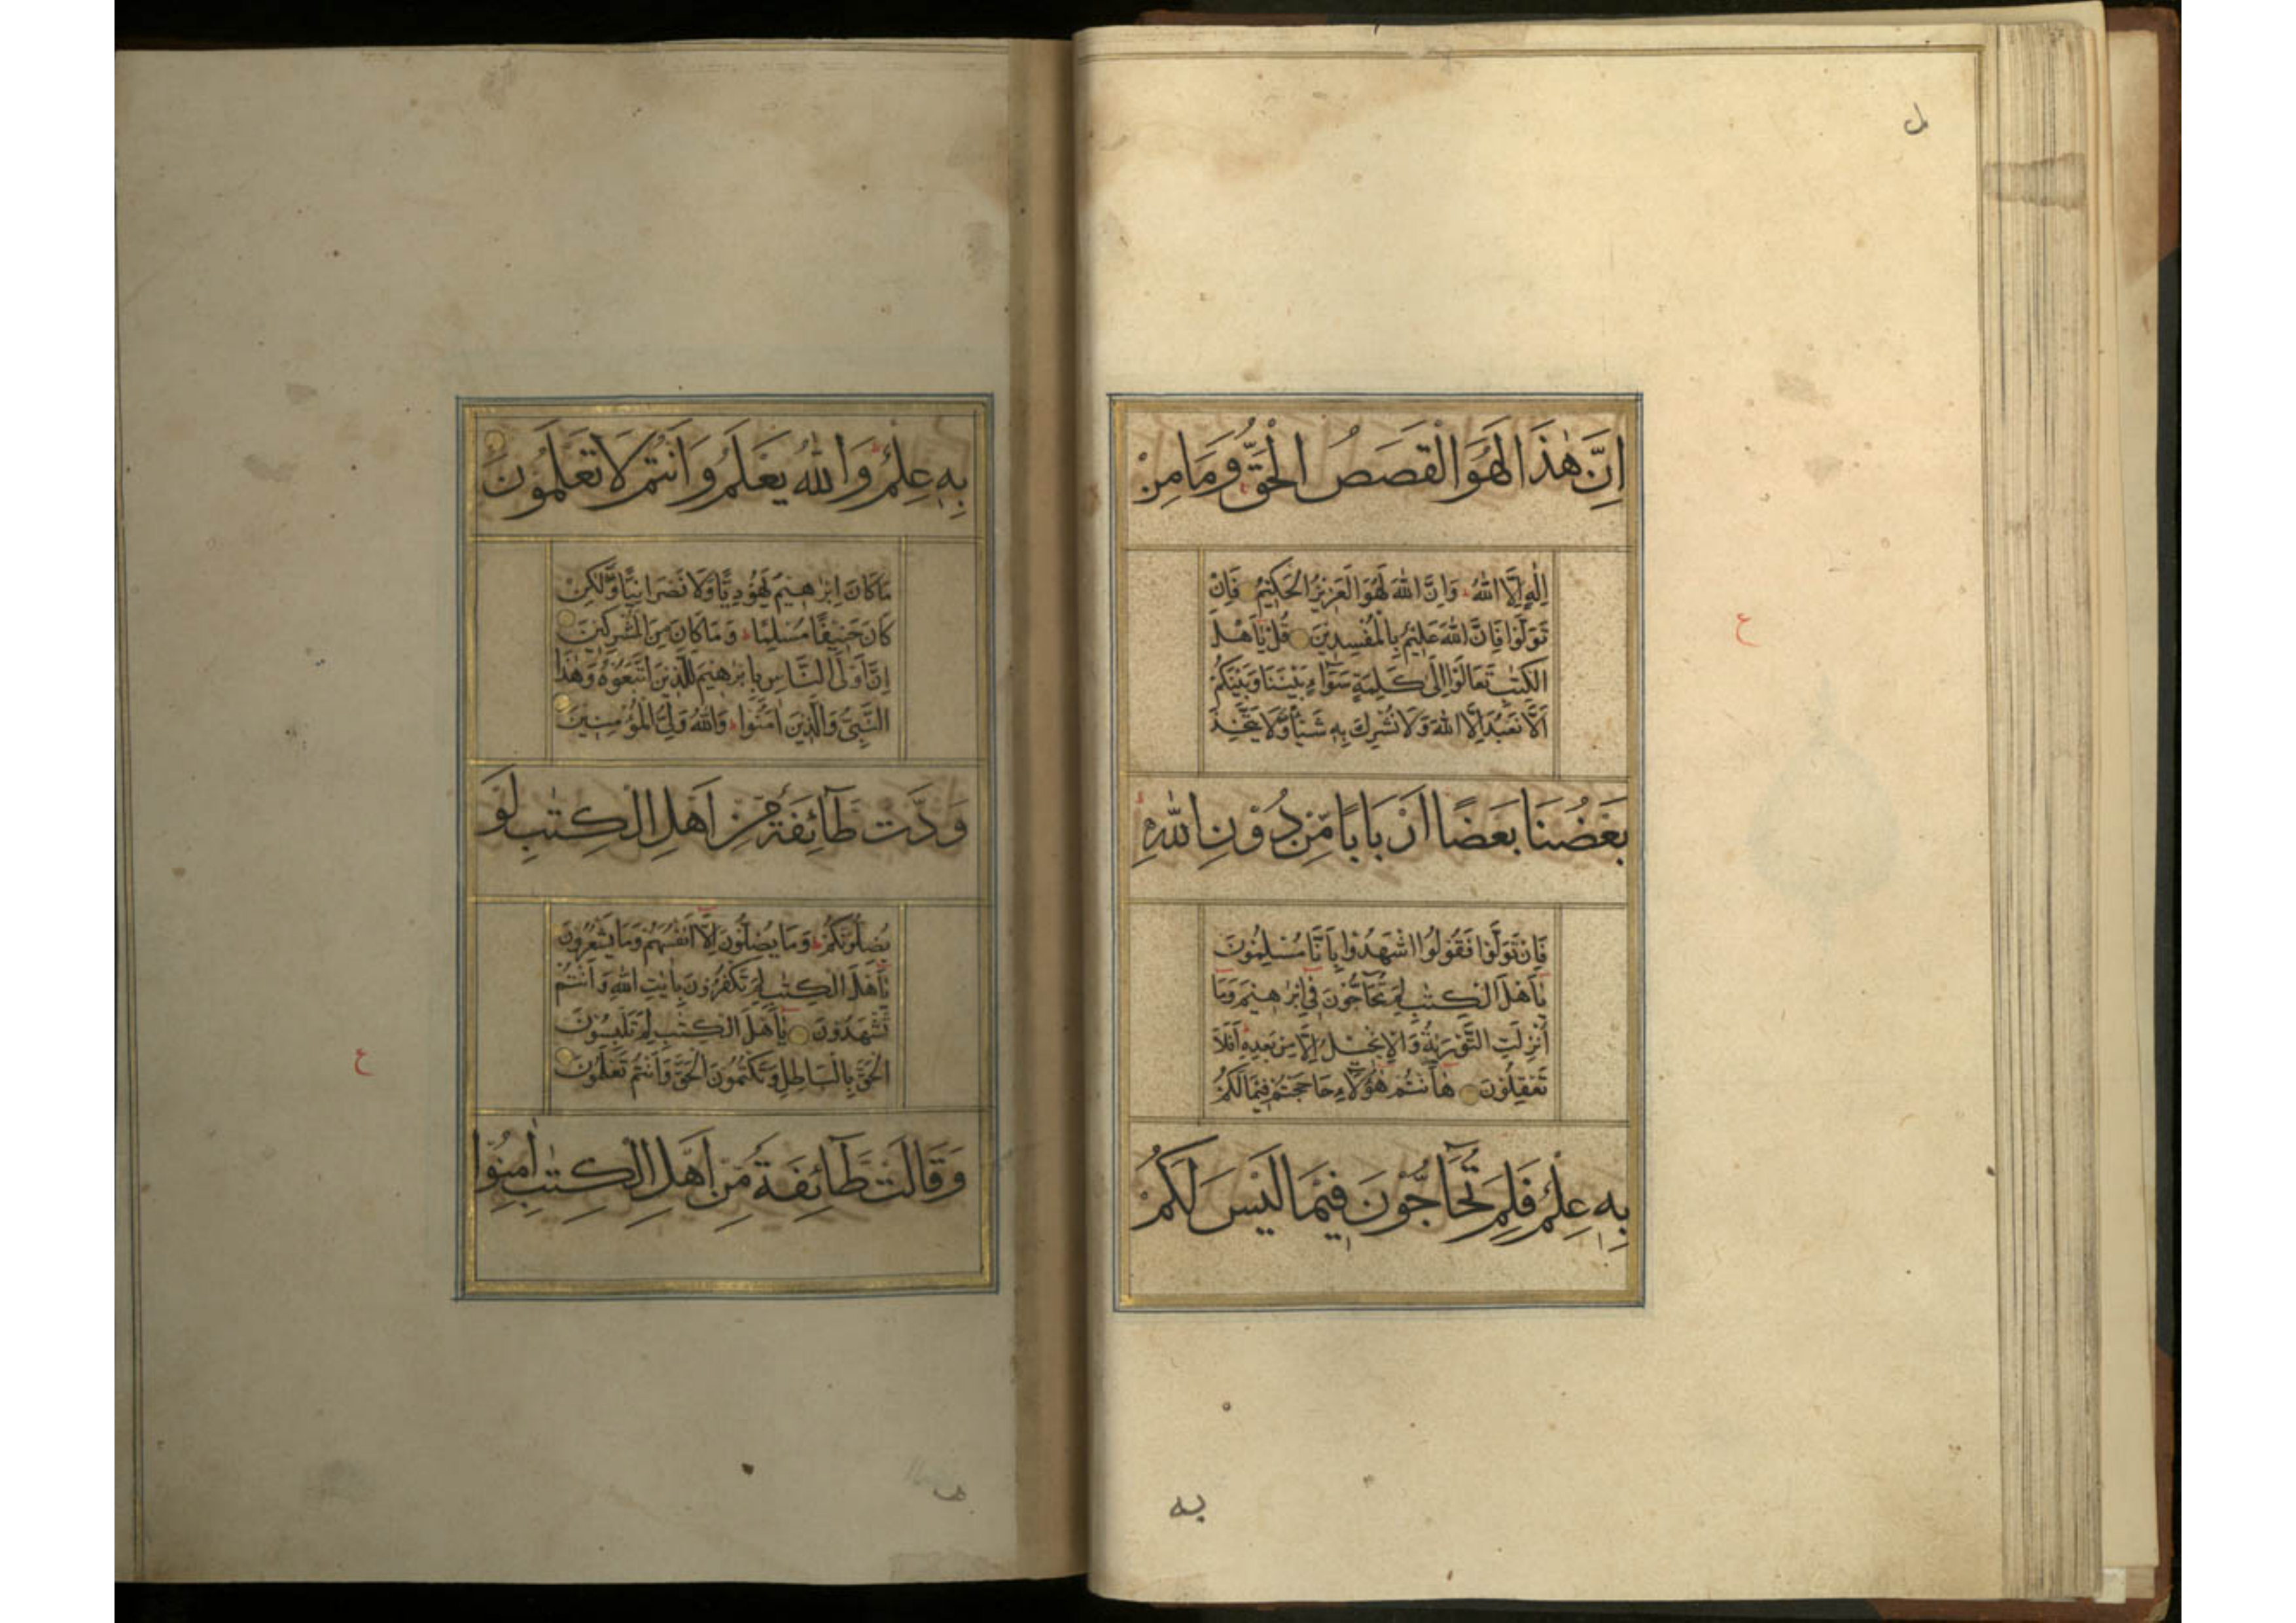 اِنَّ هٰذَا لَهُوَ الْقَصَصُ الْحَقُّ وَمَا مِنْ
اِلٰهٍ اِلَّا اللّٰهُ ط وَاِنَّ اللّٰهَ لَهُوَ الْعَزِيْزُ الْحَكِيْمُ فَاِنْ
تَوَلَّوْا فَاِنَّ اللّٰهَ عَلِيْمٌ بِالْمُفْسِدِيْنَ قُلْ يَٓاَهْلَ
الْكِتٰبِ تَعَالَوْا اِلٰى كَلِمَةٍ سَوَٓاءٍ بَيْنَنَا وَبَيْنَكُمْ
اَلَّا نَعْبُدَ اِلَّا اللّٰهَ وَلَا نُشْرِكَ بِهٖ شَيْـًٔا وَّلَا يَتَّخِذَ
بَعْضُنَا بَعْضًا اَرْبَابًا مِّنْ دُوْنِ اللّٰهِ ط
فَاِنْ تَوَلَّوْا فَقُوْلُوا اشْهَدُوْا بِاَنَّا مُسْلِمُوْنَ
يَٓاَهْلَ الْكِتٰبِ لِمَ تُحَٓاجُّوْنَ فِىْٓ اِبْرٰهِيْمَ وَمَٓا
اُنْزِلَتِ التَّوْرٰىةُ وَالْاِنْجِيْلُ اِلَّا مِنْ بَعْدِهٖ ط اَفَلَا
تَعْقِلُوْنَ هَٓا اَنْتُمْ هٰٓؤُلَٓاءِ حَاجَجْتُمْ فِيْمَا لَكُمْ
بِهٖ عِلْمٌ فَلِمَ تُحَٓاجُّوْنَ فِيْمَا لَيْسَ لَكُمْ
ع
به
بِهٖ عِلْمٌ ط وَاللّٰهُ يَعْلَمُ وَاَنْتُمْ لَا تَعْلَمُوْنَ
مَا كَانَ اِبْرٰهِيْمُ يَهُوْدِيًّا وَّلَا نَصْرَانِيًّا وَّلٰكِنْ
كَانَ حَنِيْفًا مُسْلِمًا ط وَمَا كَانَ مِنَ الْمُشْرِكِيْنَ
اِنَّ اَوْلَى النَّاسِ بِاِبْرٰهِيْمَ لَلَّذِيْنَ اتَّبَعُوْهُ وَهٰذَا
النَّبِىُّ وَالَّذِيْنَ اٰمَنُوْا ط وَاللّٰهُ وَلِىُّ الْمُؤْمِنِيْنَ
وَدَّتْ طَٓائِفَةٌ مِّنْ اَهْلِ الْكِتٰبِ لَوْ
يُضِلُّوْنَكُمْ ط وَمَا يُضِلُّوْنَ اِلَّٓا اَنْفُسَهُمْ وَمَا يَشْعُرُوْنَ
يَٓاَهْلَ الْكِتٰبِ لِمَ تَكْفُرُوْنَ بِاٰيٰتِ اللّٰهِ وَاَنْتُمْ
تَشْهَدُوْنَ يَٓاَهْلَ الْكِتٰبِ لِمَ تَلْبِسُوْنَ
الْحَقَّ بِالْبَاطِلِ وَتَكْتُمُوْنَ الْحَقَّ وَاَنْتُمْ تَعْلَمُوْنَ
وَقَالَتْ طَٓائِفَةٌ مِّنْ اَهْلِ الْكِتٰبِ اٰمِنُوْا
ع